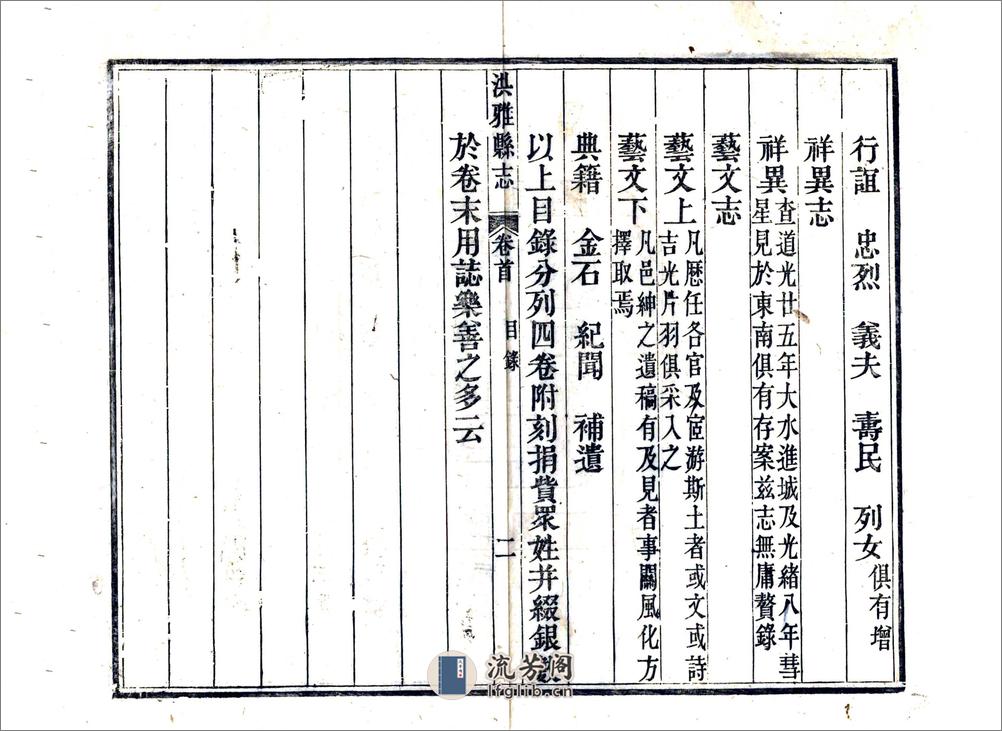 行誼　忠烈　義夫　壽民　列女俱有增
祥異志
祥異查道光廿五年大水進城及光緒八年彗
星見於東南俱有存案茲志無庸贅錄
藝文志
藝文上凡歷任各官及宦游斯土者或文或詩
吉光片羽俱采入之
藝文下凡邑紳之遺稿有及見者事關風化方
擇取焉
典籍　金石　紀聞　補遺
以上目錄分列四卷附刻捐貲眾姓并綴銀
洪雅縣志　卷首　目錄　二
於卷末用誌樂善之多云
流芳阁
lfglib.cn